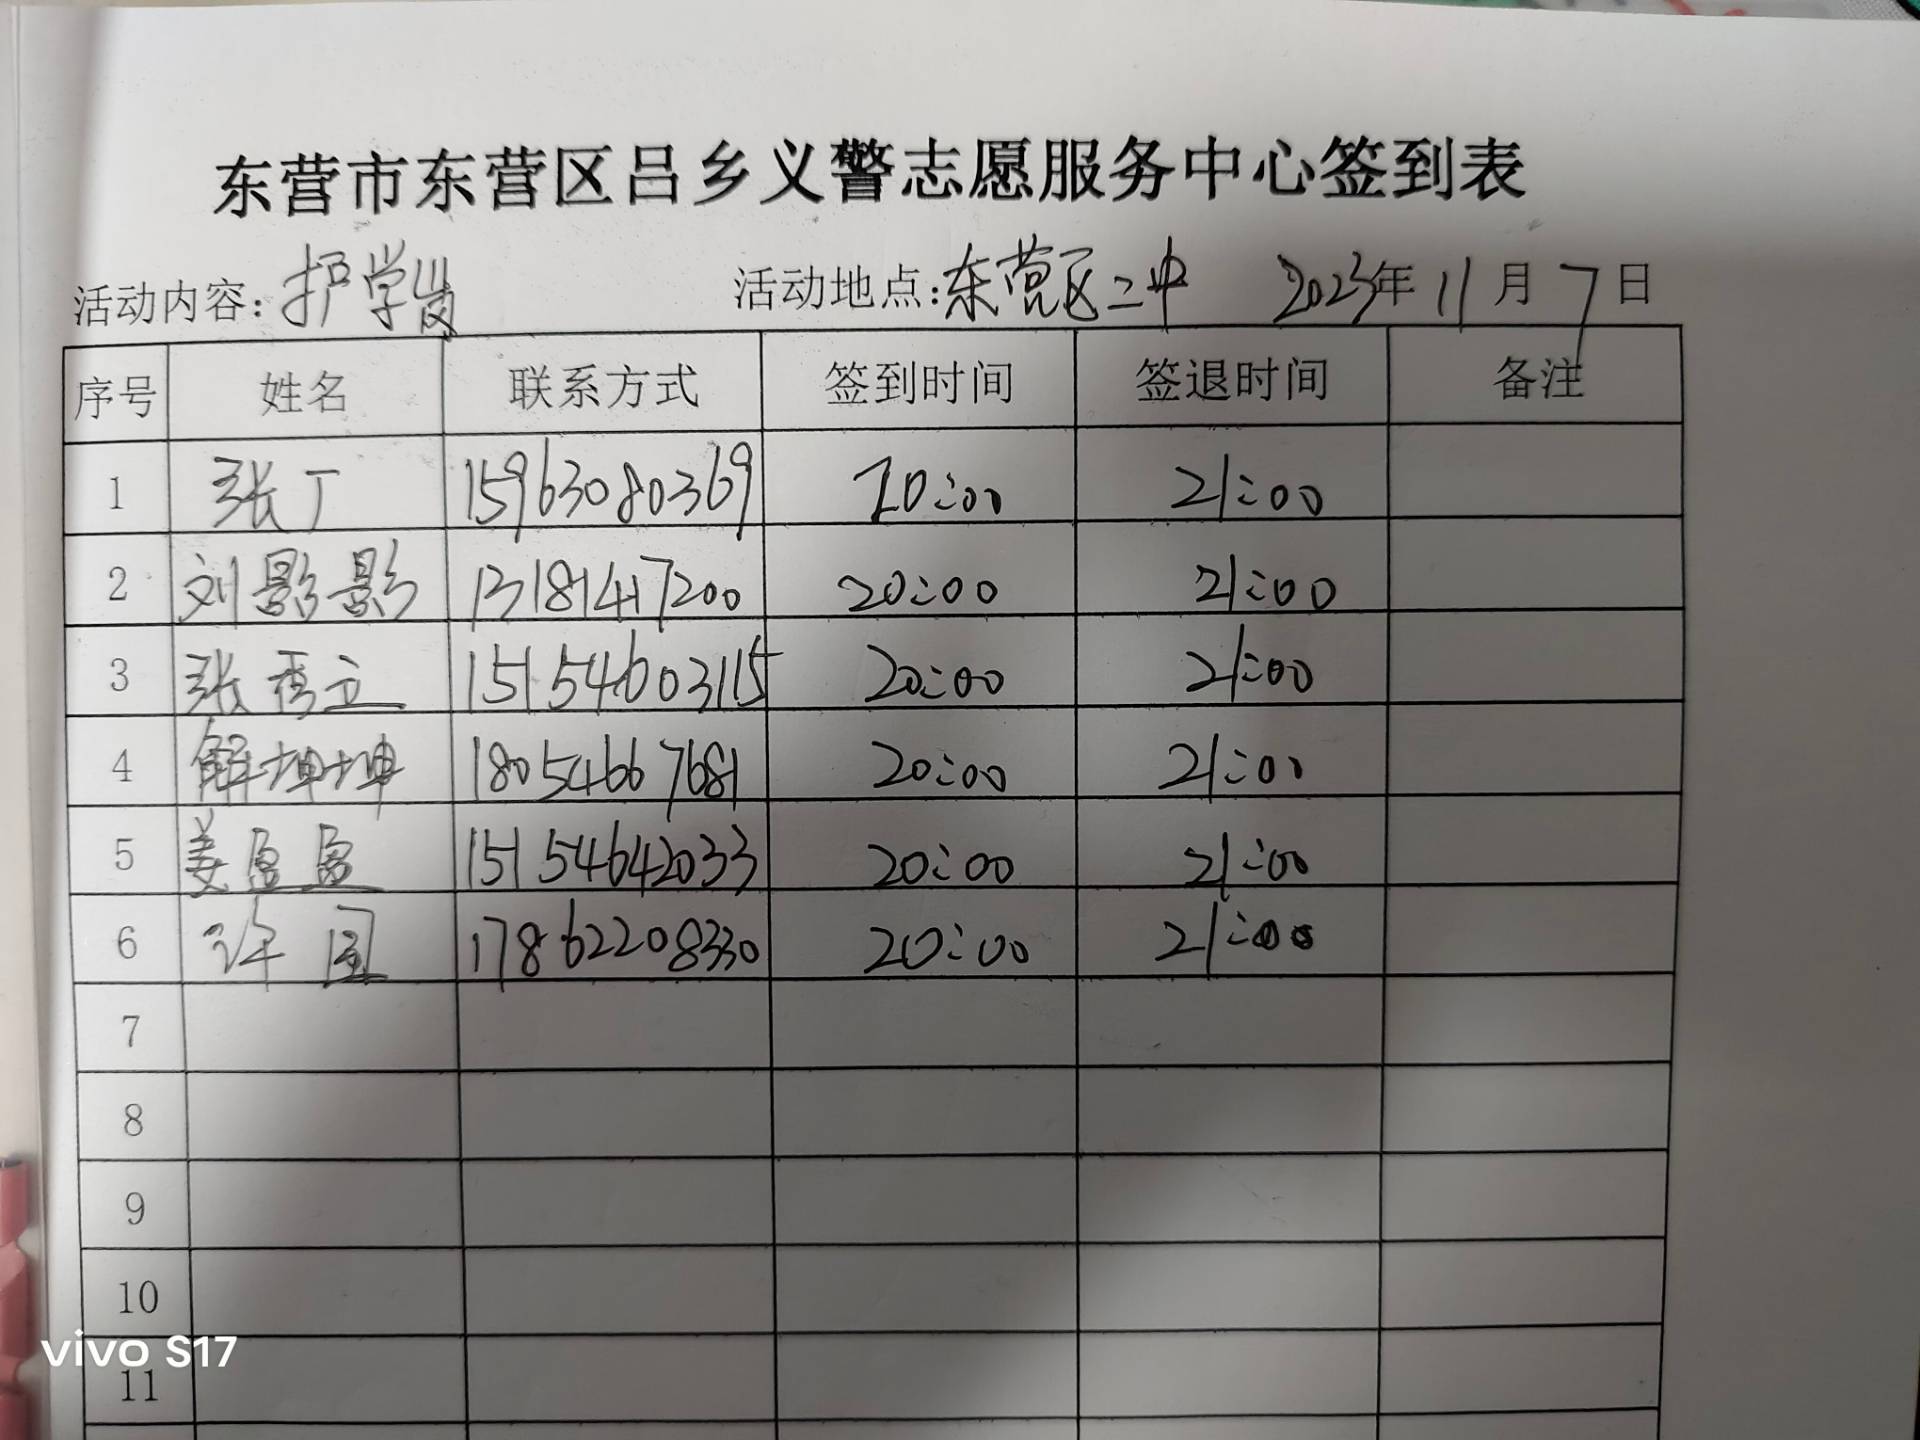 东营市东营区吕乡义警志愿服务中心签到表
活动内容:护学岗 活动地点:东营区二中 2023年11月7日
序号 姓名 联系方式 签到时间 签退时间 备注
1 张丁 15963080369 20:00 21:00
2 刘影影 13181417200 20:00 21:00
3 张秀立 15154603115 20:00 21:00
4 解坤坤 18054667681 20:00 21:00
5 姜盈盈 15154642033 20:00 21:00
6 许 17862208330 20:00 21:00
7
8
9
10
vivo S17
11